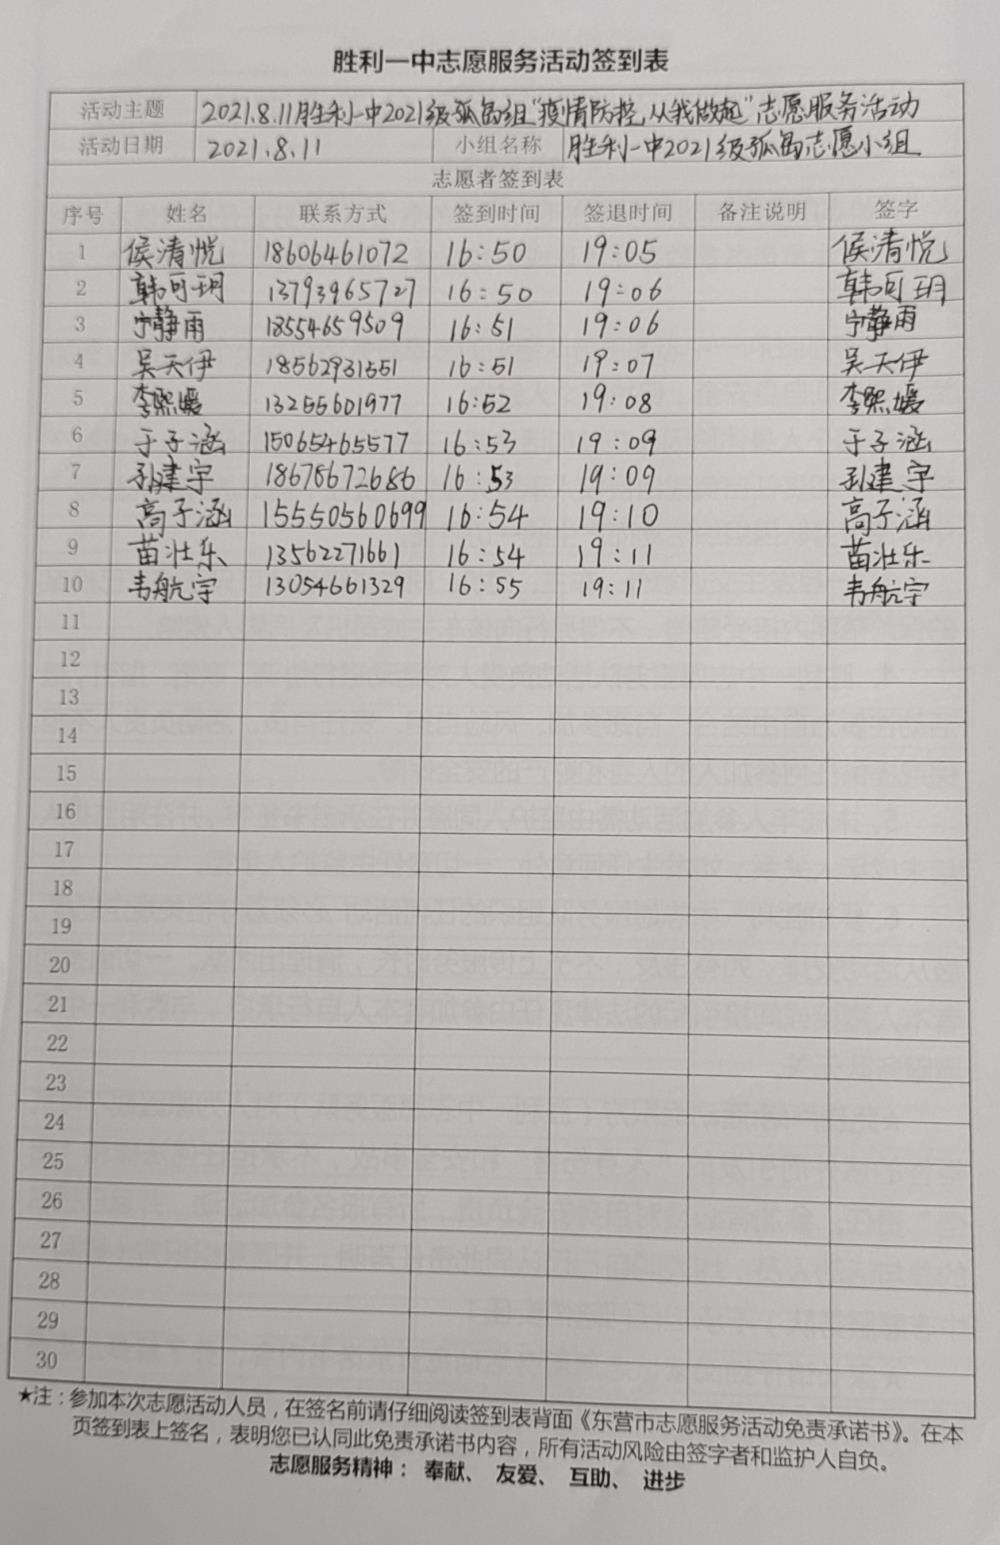 胜利一中志愿服务活动签到表
活动主题 2021.8.11胜利一中2021级孤岛组"疫情防控,从我做起"志愿服务活动
活动日期 2021.8.11 小组名称 胜利一中2021级孤岛志愿小组
志愿者签到表
序号 姓名 联系方式 签到时间 签退时间 备注说明 签字
1 侯清悦 18606461072 16:50 19:05 侯清悦
2 韩可玥 13793965727 16:50 19:06 韩可玥
3 宁静雨 18554659509 16:51 19:06 宁静雨
4 吴天伊 18562931551 16:51 19:07 吴天伊
5 李熙媛 13255601977 16:52 19:08 李熙媛
6 于子涵 15065465577 16:53 19:09 于子涵
7 孙建宇 18678672686 16:53 19:09 孙建宇
8 高子涵 15550560699 16:54 19:10 高子涵
9 苗壮乐 13562271661 16:54 19:11 苗壮乐
10 韦航宇 13054661329 16:55 19:11 韦航宇
11
12
13
14
15
16
17
18
19
20
21
22
23
24
25
26
27
28
29
30
★注：参加本次志愿活动人员，在签名前请仔细阅读签到表背面《东营市志愿服务活动免责承诺书》。在本
页签到表上签名，表明您已认同此免责承诺书内容，所有活动风险由签字者和监护人自负。
志愿服务精神： 奉献、 友爱、 互助、 进步